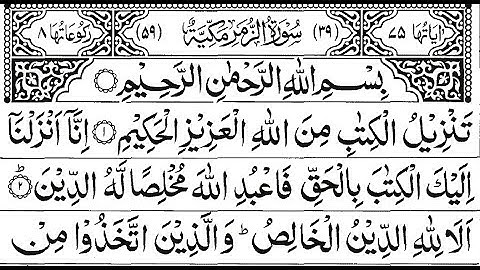 اٰیَاتُهَا ۷۵ (۳۹) سُوْرَةُ الزُّمَرِ مَكِّیَّةٌ (۵۹) رُكُوْعَاتُهَا ۸
بِسْمِ اللهِ الرَّحْمٰنِ الرَّحِیْمِ
تَنْزِیْلُ الْكِتٰبِ مِنَ اللهِ الْعَزِیْزِ الْحَكِیْمِ ۱ اِنَّاۤ اَنْزَلْنَاۤ
اِلَیْكَ الْكِتٰبَ بِالْحَقِّ فَاعْبُدِ اللهَ مُخْلِصًا لَّهُ الدِّیْنَ ؕ ۲
اَلَا لِلّٰهِ الدِّیْنُ الْخَالِصُ ؕ وَالَّذِیْنَ اتَّخَذُوْا مِنْ